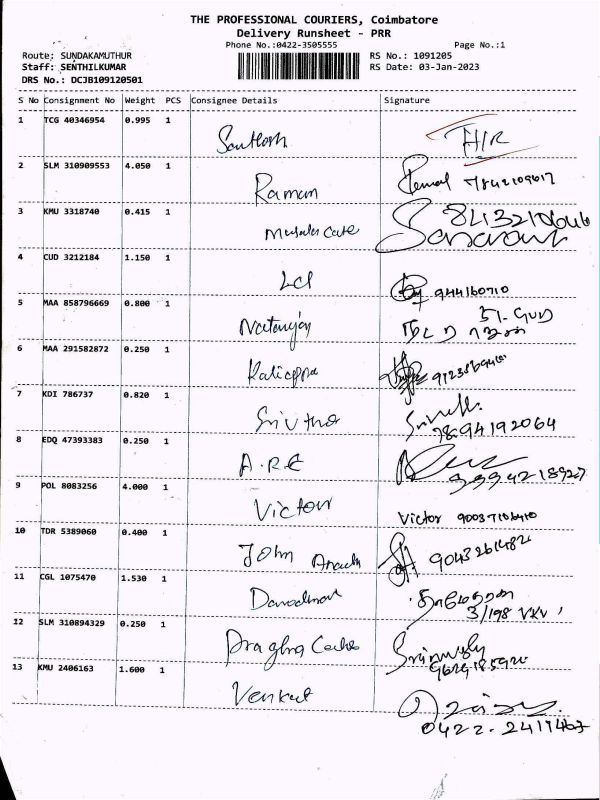 THE PROFESSIONAL COURIERS, Coimbatore
Delivery Runsheet - PRR
Phone No.:0422-3505555 Page No.:1
Route: SUNDAKAMUTHUR RS No.: 1091205
Staff: SENTHILKUMAR RS Date: 03-Jan-2023
DRS No.: DCJB109120501
S No Consignment No Weight PCS Consignee Details Signature
1 TCG 40346954 0.995 1 Santhosh
2 SLM 310909553 4.050 1 Raman
3 KMU 3318740 0.415 1
4 CUD 3212184 1.150 1
5 MAA 858796669 0.800 1 Natarajan
6 MAA 291582872 0.250 1 Kaliappa
7 KDI 786737 0.820 1
7894192064
8 EDQ 47393383 0.250 1 A.R.E
9994218927
9 POL 8083256 4.000 1 Victor Victor
10 TDR 5389060 0.400 1 John 9043261482
11 CGL 1075470 1.530 1
3/198
12 SLM 310894329 0.250 1
13 KMU 2406163 1.600 1 Venkat
0422-2411463